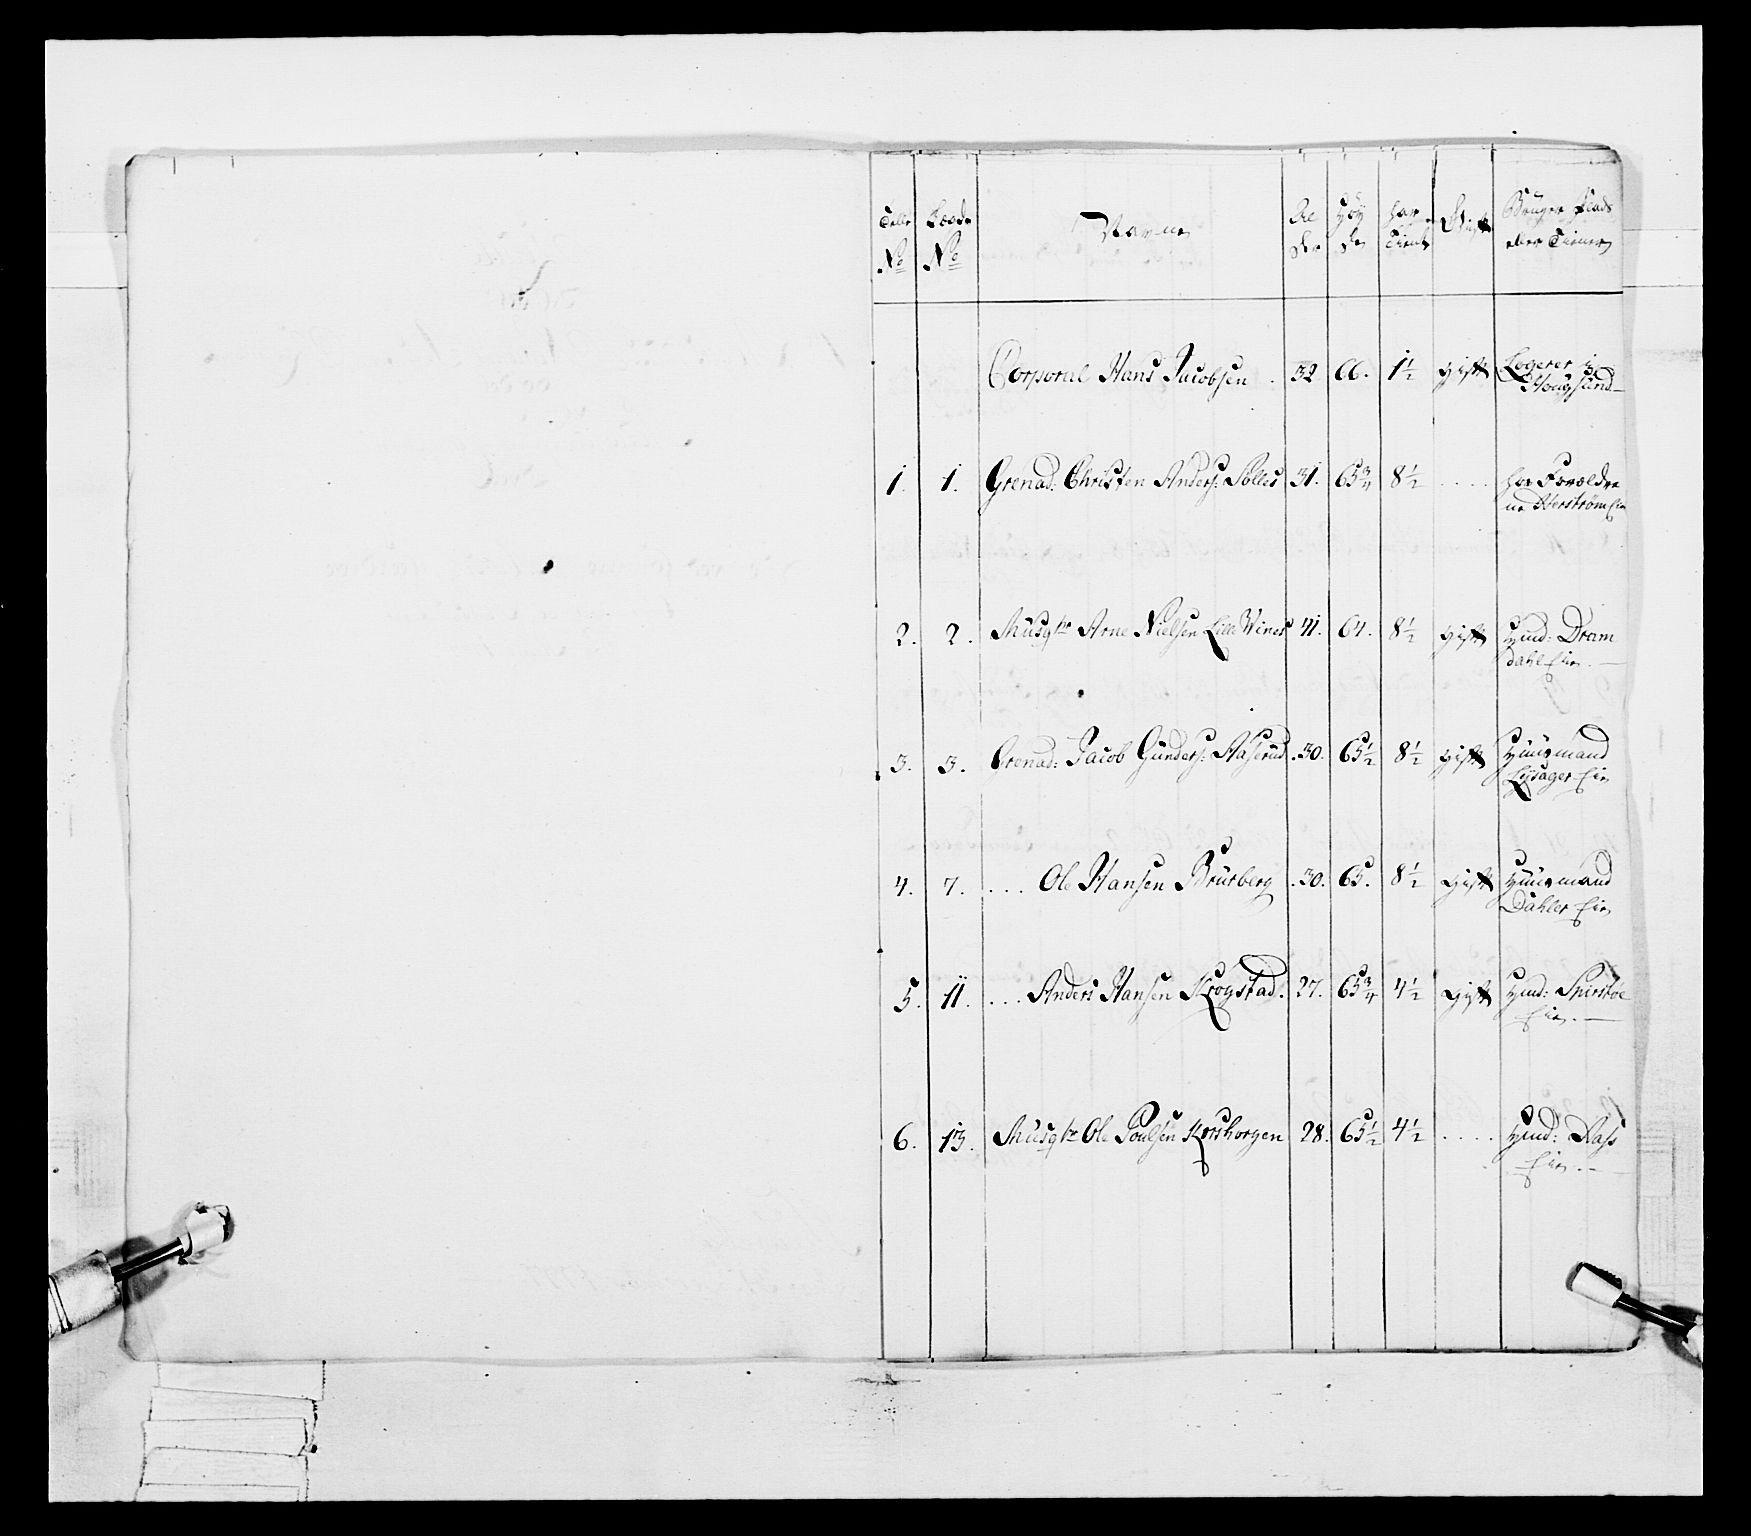 Telle No | Lægds No | Navne | Alder | Høyde | har Tient | Gift | Bruger Plads eller Tiener
Corporal Hans Jacobsen . | 32 | 66. | 1½ | gift | Logerer i Hougsund
1. | 1. | Grenad: Christen Anders: Solles | 31. | 65¾ | 8½ | .... | hos Forældre
ne Herstrøm Eie
2. | 2. | Musqtr Arne Nielsen Lille Wines | 41. | 64. | 8½ | gift | Hmd: Dram
dahl Eie
3. | 3. | Grenad: Jacob Gunders: Aaserud | 30. | 65½ | 8½ | gift | Huusmand
Lejsager Eie
4. | 7. | ... Ole Hansen Bruberg | 30. | 65. | 8½ | gift | Huusmand
Dahler Eie
5. | 11. | ... Anders Hansen Krogstad. | 27. | 65¾ | 4½ | gift | Hmd:
Eie
6. | 13. | Musqtr Ole Poulsen Korshorgen | 28. | 65½ | 4½ | .... | Hmd: Aass
Eie